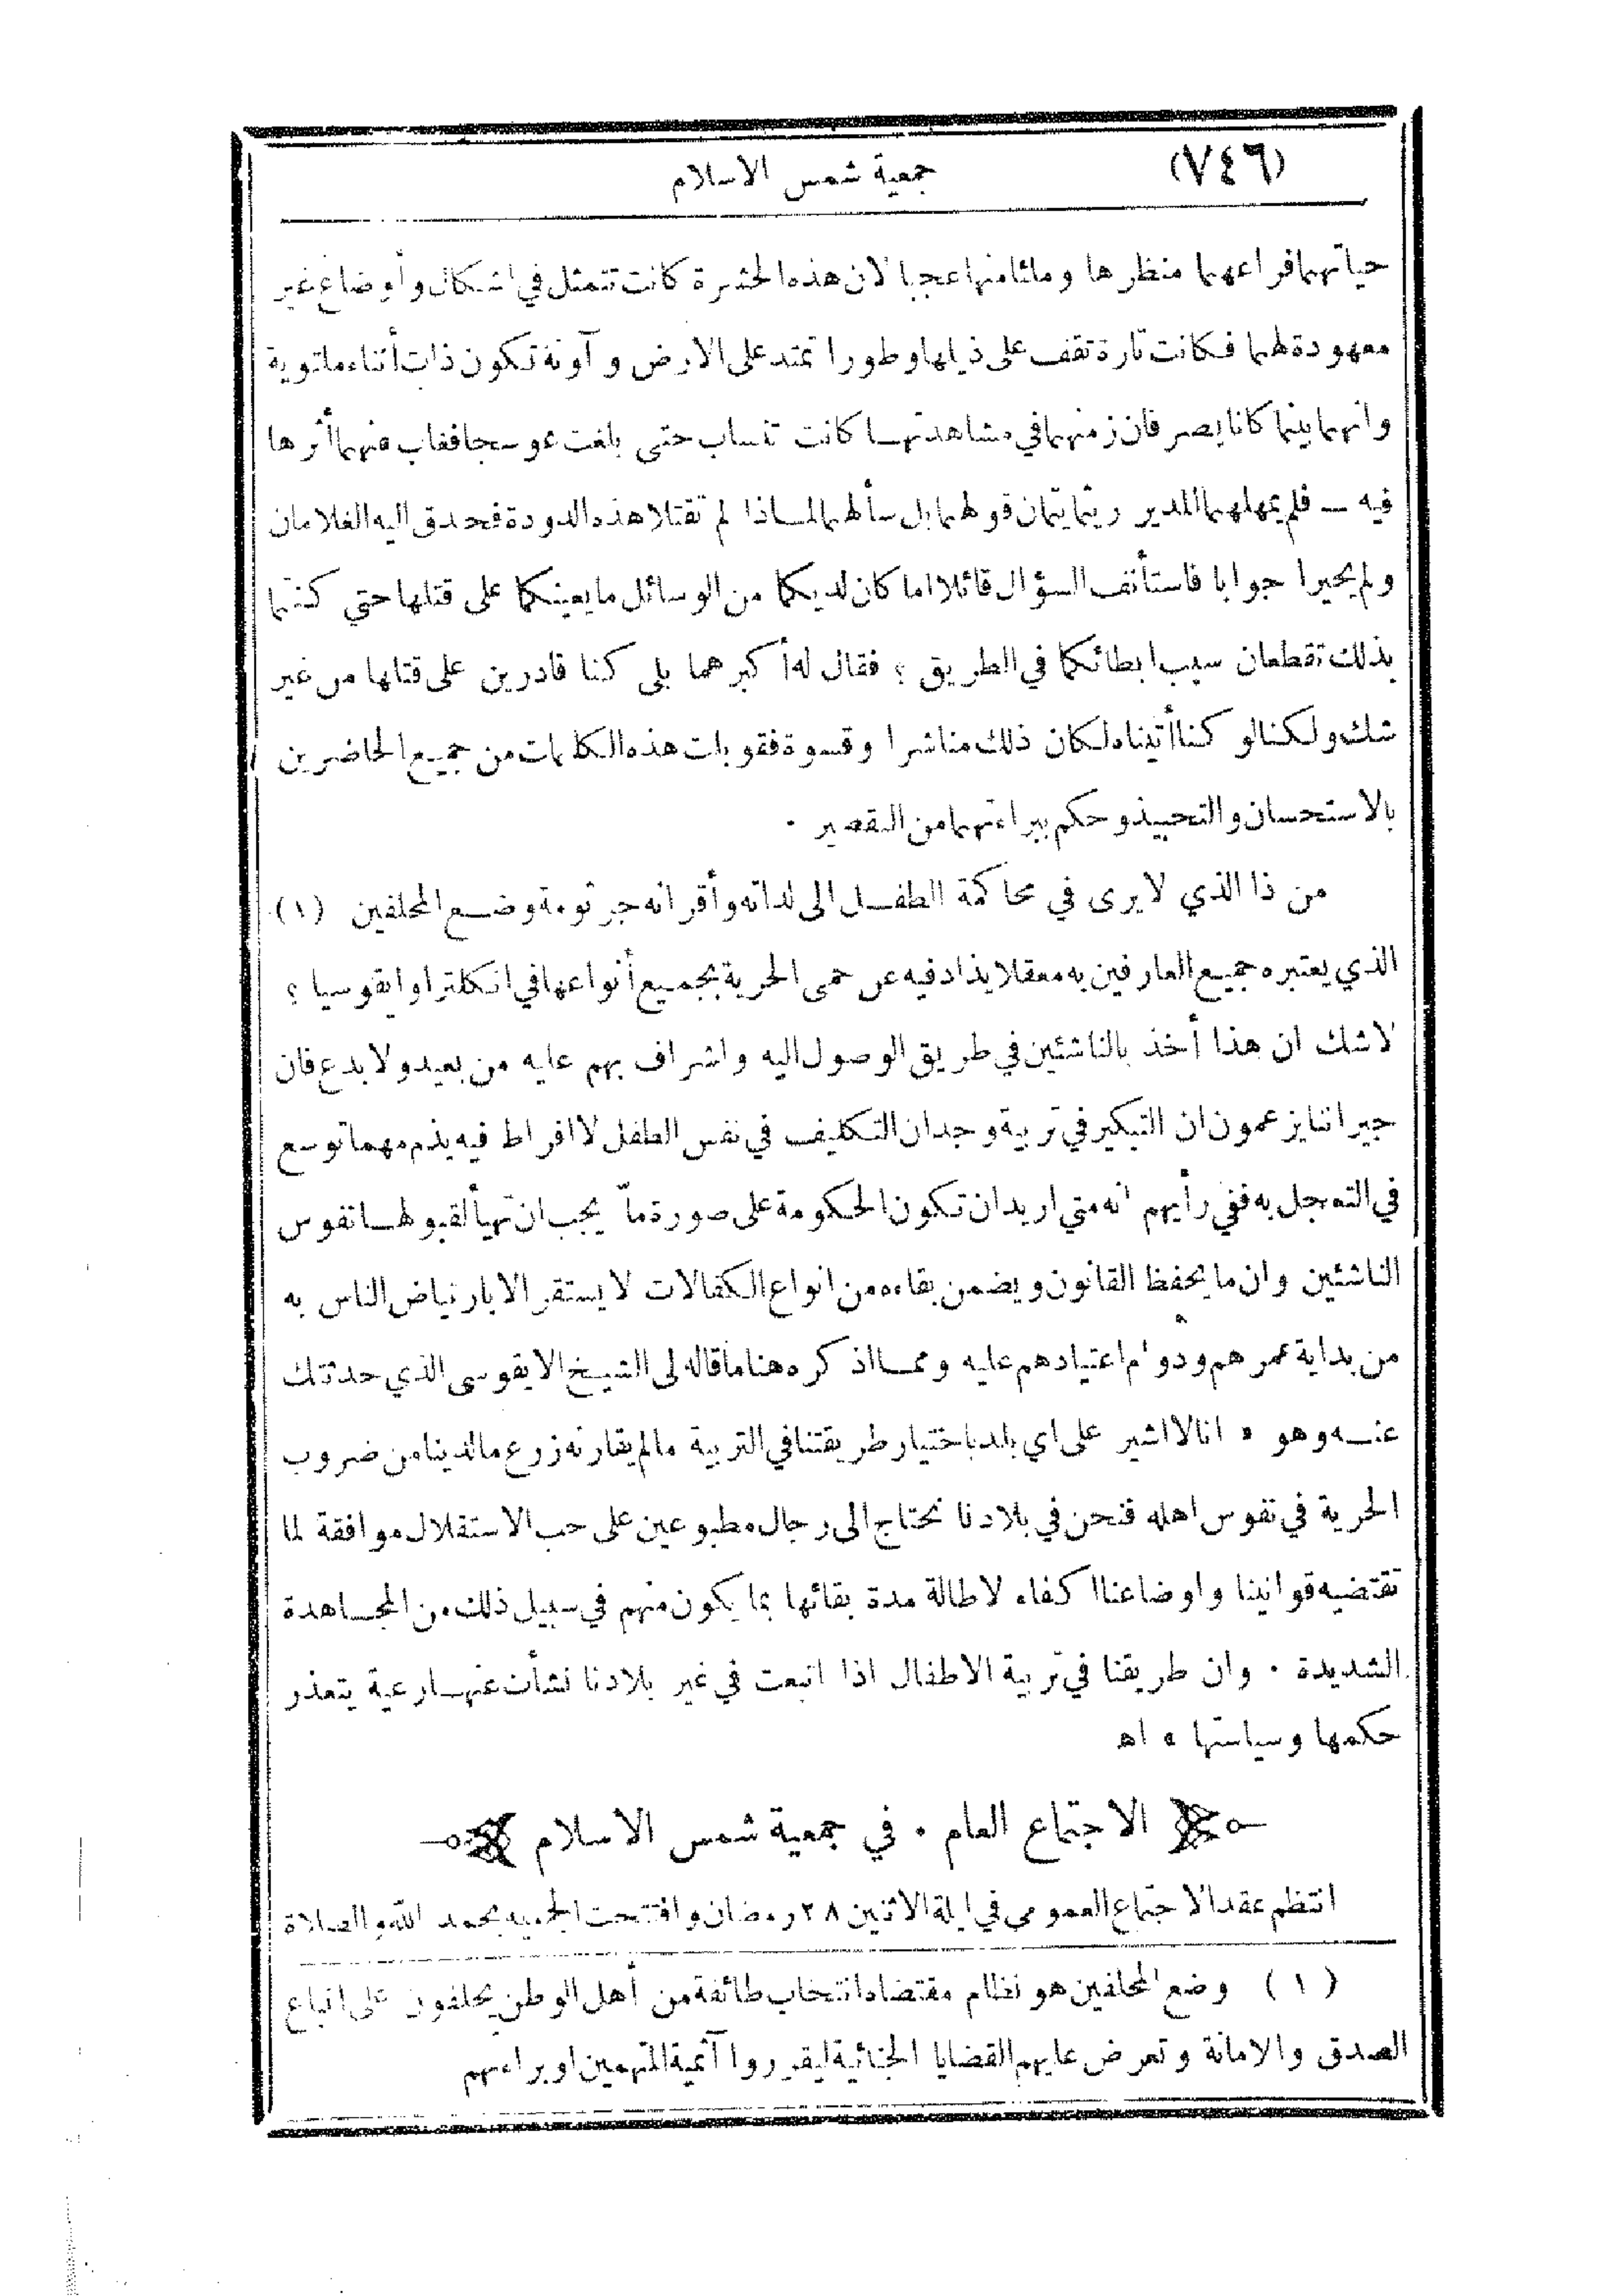 (٧٤٦) جمعية شمس الاسلام
حياتهما فراعهما منظرها وملئا منها عجبا لان هذه الحشرة كانت تتمثل في اشكال وأوضاع غير
معهودة لهما فكانت تارة تقف على ذيلها وطورا تمتد على الارض وآونة تكون ذات أثناء ملتوية
وانهما بينما كانا يصرفان زمنهما في مشاهدتها كانت تنساب حتى بلغت عوسجا فغاب عنهما أثرها
فيه — فلم يمهلهما المدير ريثما يتمان قولهما بل سألهما لماذا لم تقتلا هذه الدودة فحدق اليه الغلامان
ولم يحيرا جوابا فاستأنف السؤال قائلا اما كان لديكما من الوسائل ما يعينكما على قتلها حتى كنتما
بذلك تقطعان سبب ابطائكما في الطريق ؟ فقال له أكبرهما بلى كنا قادرين على قتلها من غير
شك ولكنا لو كنا أتيناه لكان ذلك منا شرا وقسوة فقوبلت هذه الكلمات من جميع الحاضرين
بالاستحسان والتحبيذ وحكم ببراءتهما من التقصير .
من ذا الذي لا يرى في محاكمة الطفل الى لداته وأقرانه جرثومة وضع المحلفين (١)
الذي يعتبره جميع العارفين به معقلا يذاد فيه عن حمى الحرية بجميع أنواعها في انكلترا وايقوسيا ؟
لا شك ان هذا أخذ بالناشئين في طريق الوصول اليه واشراف بهم عليه من بعيد ولا بدع فان
جيراننا يزعمون ان التبكير في تربية وجدان التكليف في نفس الطفل لا افراط فيه يذم مهما توسع
في التعجل به ففي رأيهم انه متى اريد ان تكون الحكومة على صورة ماّ يجب ان تهيأ لقبولها نفوس
الناشئين وان ما يحفظ القانون ويضمن بقاءه من انواع الكفالات لا يستقر الا بارتياض الناس به
من بداية عمرهم ودوام اعتيادهم عليه ومما اذكره هنا ما قاله لى الشيخ الايقوسى الذي حدثتك
عنه وهو « انا لا اشير على اي بلد باختيار طريقتنا في التربية ما لم يقارنه زرع ما لدينا من ضروب
الحرية في نفوس اهله فنحن في بلادنا نحتاج الى رجال مطبوعين على حب الاستقلال موافقة لما
تقتضيه قوانينا واوضاعنا اكفاء لاطالة مدة بقائها بما يكون منهم في سبيل ذلك من المجاهدة
الشديدة . وان طريقنا في تربية الاطفال اذا اتبعت في غير بلادنا نشأت عنها رعية يتعذر
حكمها وسياستها » اه
الاجتماع العام . في جمعية شمس الاسلام
انتظم عقد الاجتماع العمومى في ليلة الاثنين ٢٨ رمضان وافتتحت الجمعيه بحمد الله والصلاة
(١) وضع المحلفين هو نظام مقتضاه انتخاب طائفة من أهل الوطن يحلفون على اتباع
الصدق والامانة وتعرض عليهم القضايا الجنائية ليقرروا آثمية المتهمين او براءتهم